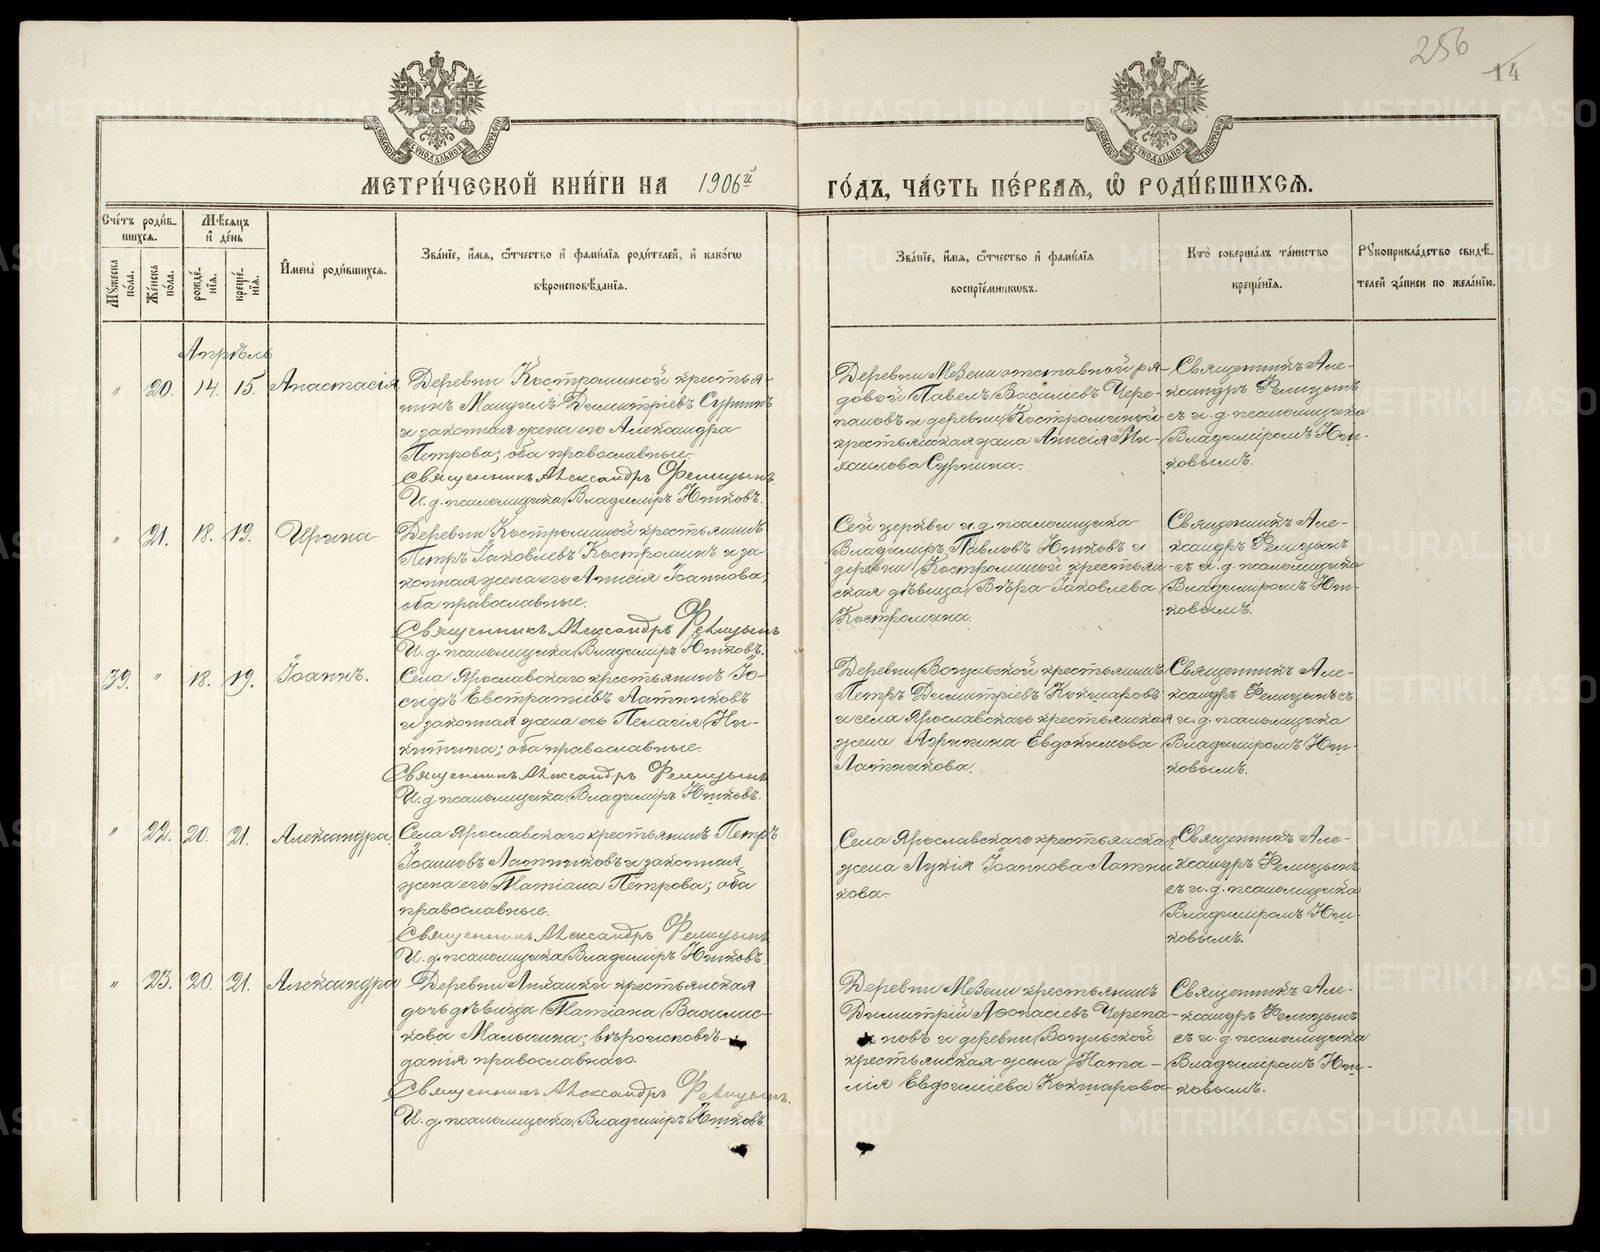 256
14
МЕТРИ́ЧЕСКОЙ КНИ́ГИ НА 1906й
ГО́ДЪ, ЧА́СТЬ ПЕ́РВАЯ, Ѽ РОДИ́ВШИХСЯ.
Сче́тъ роди́в-
шихся.
Му́жеска по́ла.
Же́нска по́ла.
Мѣ́сяцъ
и҆ де́нь
рожде́-
нїя.
креще́-
нїя.
И҆мена̀ роди́вшихся.
Зва́нїе, и҆́мя, ѻ҆́тчество и҆ фами́лїя роди́телей, и҆ како́гѡ
вѣроисповѣ́данїя.
Зва́нїе, и҆́мя, ѻ҆́тчество и҆ фами́лїя
воспрїе́мникѡвъ.
Кто̀ соверша́лъ та́инство
креще́нїя.
Рꙋкоприкла́дство свидѣ́-
телей за́писи по жела́нїю.
Апрѣль
" 20. 14. 15. Анастасія
Деревни Костроминой крестья-
нинъ Мандилъ Димитріевъ Суринъ
и законная жена его Александра
Петрова; оба православные.
Священникъ Александръ Фелицынъ.
И. д. псаломщика Владиміръ Ютковъ.
Деревни Мезени отставной ря-
довой Павелъ Василіевъ Чере-
пановъ и деревни Костроминой
крестьянская жена Анисія Ми-
хаилова Сурнина.
Священникъ Але-
ксандръ Фелицынъ
съ и. д. псаломщика
Владиміромъ Ют-
ковымъ.
" 21. 18. 19. Ирина
Деревни Костроминой крестьянинъ
Петръ Іаковлевъ Костроминъ и за-
конная жена его Анисія Іоаннова;
оба православные.
Священникъ Александръ Фелицынъ
И. д. псаломщика Владиміръ Ютковъ.
Сей церкви и. д. псаломщика
Владиміръ Павловъ Ютковъ и
деревни Костроминой крестьян-
ская дѣвица Вѣра Іаковлева
Костромина.
Священникъ Але-
ксандръ Фелицынъ
съ и. д. псаломщика
Владиміромъ Ют-
ковымъ.
39. " 18. 19. Іоаннъ.
Села Ярославскаго крестьянинъ Іо-
сифъ Евстратіевъ Латниковъ
и законная жена его Пелагія Ни-
китина; оба православные.
Священникъ Александръ Фелицынъ
И. д. псаломщика Владиміръ Ютковъ.
Деревни Вогульской крестьянинъ
Петръ Димитріевъ Кокшаровъ
и села Ярославскаго крестьянская
жена Агрипина Евдокимова
Латникова.
Священникъ Але-
ксандръ Фелицынъ съ
и. д. псаломщика
Владиміромъ Ют-
ковымъ.
" 22. 20. 21. Александра
Села Ярославскаго крестьянинъ Петръ
Іоанновъ Латниковъ и законная
жена его Татіана Петрова; оба
православные.
Священникъ Александръ Фелицынъ
И. д. псаломщика Владиміръ Ютковъ.
Села Ярославскаго крестьянская
жена Лукія Іоаннова Латни-
кова.
Священникъ Але-
ксандръ Фелицынъ
съ и. д. псаломщика
Владиміромъ Ют-
ковымъ.
" 23. 20. 21. Александра
Деревни крестьянская
дочь дѣвица Татіана Василис-
кова Малыгина; вѣроисповѣ-
данія православнаго.
Священникъ Александръ Фелицынъ.
И. д. псаломщика Владиміръ Ютковъ
Деревни Мезени крестьянинъ
Димитрій Аѳонасіевъ Черепа-
новъ и деревни Вогульской
крестьянская жена Ната-
лія Евфиміева Кокшарова
Священникъ Але-
ксандръ Фелицынъ
съ и. д. псаломщика
Владиміромъ Ют-
ковымъ.